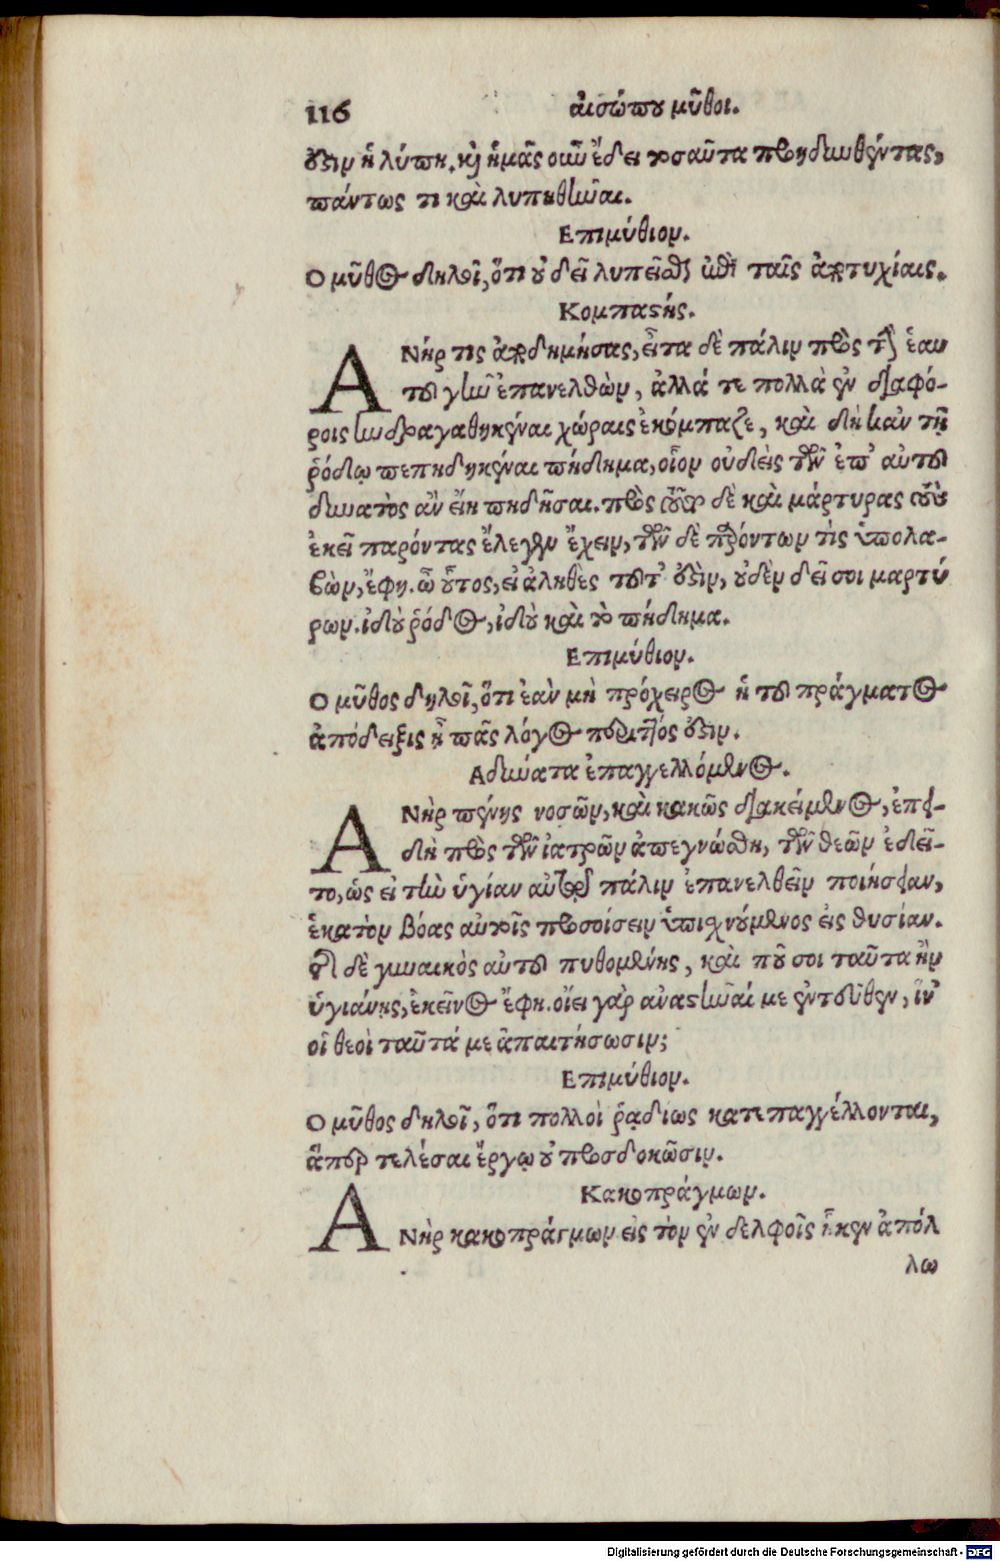 116 αἰσώπου μῦθοι.
ἐστιν ἡ λύπη. καὶ ἡμᾶς οὖν ἔδει τοσαῦτα προηδυνθέντας,
πάντως τι καὶ λυπηθῆναι.
Επιμύθιον.
Ο μῦθος δηλοῖ, ὅτι οὐ δεῖ λυπεῖσθαι ἐπὶ ταῖς ἀποτυχίαις.
Κομπαστής.
ΑΝήρ τις ἀποδημήσας, εἶτα δὲ πάλιν πρὸς τὴν ἑαυ
τοῦ γῆν ἐπανελθὼν, ἄλλά τε πολλὰ ἐν διαφό-
ροις ἠνδραγαθηκέναι χώραις ἐκόμπαζε, καὶ δὴ κἀν τῇ
ῥόδῳ πεπηδηκέναι πήδημα, οἷον οὐδεὶς τῶν ἐπ' αὐτοῦ
δυνατὸς ἂν εἴη πηδῆσαι. πρὸς τοῦτο δὲ καὶ μάρτυρας τοὺς
ἐκεῖ παρόντας ἔλεγεν ἔχειν, τῶν δὲ παρόντων τὶς ὑπολα-
βὼν, ἔφη. ὦ οὗτος, εἰ ἀληθὲς τοῦτ' ἐστὶν, οὐδὲν δεῖ σοι μαρτύ
ρων. ἰδοὺ ῥόδος, ἰδοὺ καὶ τὸ πήδημα.
Επιμύθιον.
Ο μῦθος δηλοῖ, ὅτι ἐὰν μὴ πρόχειρος ἡ τοῦ πράγματος
ἀπόδειξις ᾖ πᾶς λόγος περιττός ἐστιν.
Αδύνατα ἐπαγγελλόμενος.
ΑΝὴρ πένης νοσῶν, καὶ κακῶς διακείμενος, ἐπει-
δὴ πρὸς τῶν ἰατρῶν ἀπεγνώσθη, τῶν θεῶν ἐδεῖ-
το, ὡς εἰ τὴν ὑγίαν αὐτῷ πάλιν ἐπανελθεῖν ποιήσειαν,
ἑκατὸν βόας αὐτοῖς προσοίσειν ὑπισχνούμενος εἰς θυσίαν.
τῆς δὲ γυναικὸς αὐτοῦ πυθομένης, καὶ ποῦ σοι ταῦτα ἢν
ὑγιάνῃς, ἐκεῖνος ἔφη. οἴει γὰρ ἀναστῆναί με ἐντεῦθεν, ἵν'
οἱ θεοὶ ταῦτά με ἀπαιτήσωσιν;
Επιμύθιον.
Ο μῦθος δηλοῖ, ὅτι πολλοὶ ῥᾳδίως κατεπαγγέλλονται,
ἅπερ τελέσαι ἔργῳ οὐ προσδοκῶσιν.
Κακοπράγμων.
ΑΝὴρ κακοπράγμων εἰς τὸν ἐν δελφοῖς ἧκεν ἀπόλ
λω
Digitalisierung gefördert durch die Deutsche Forschungsgemeinschaft - DFG